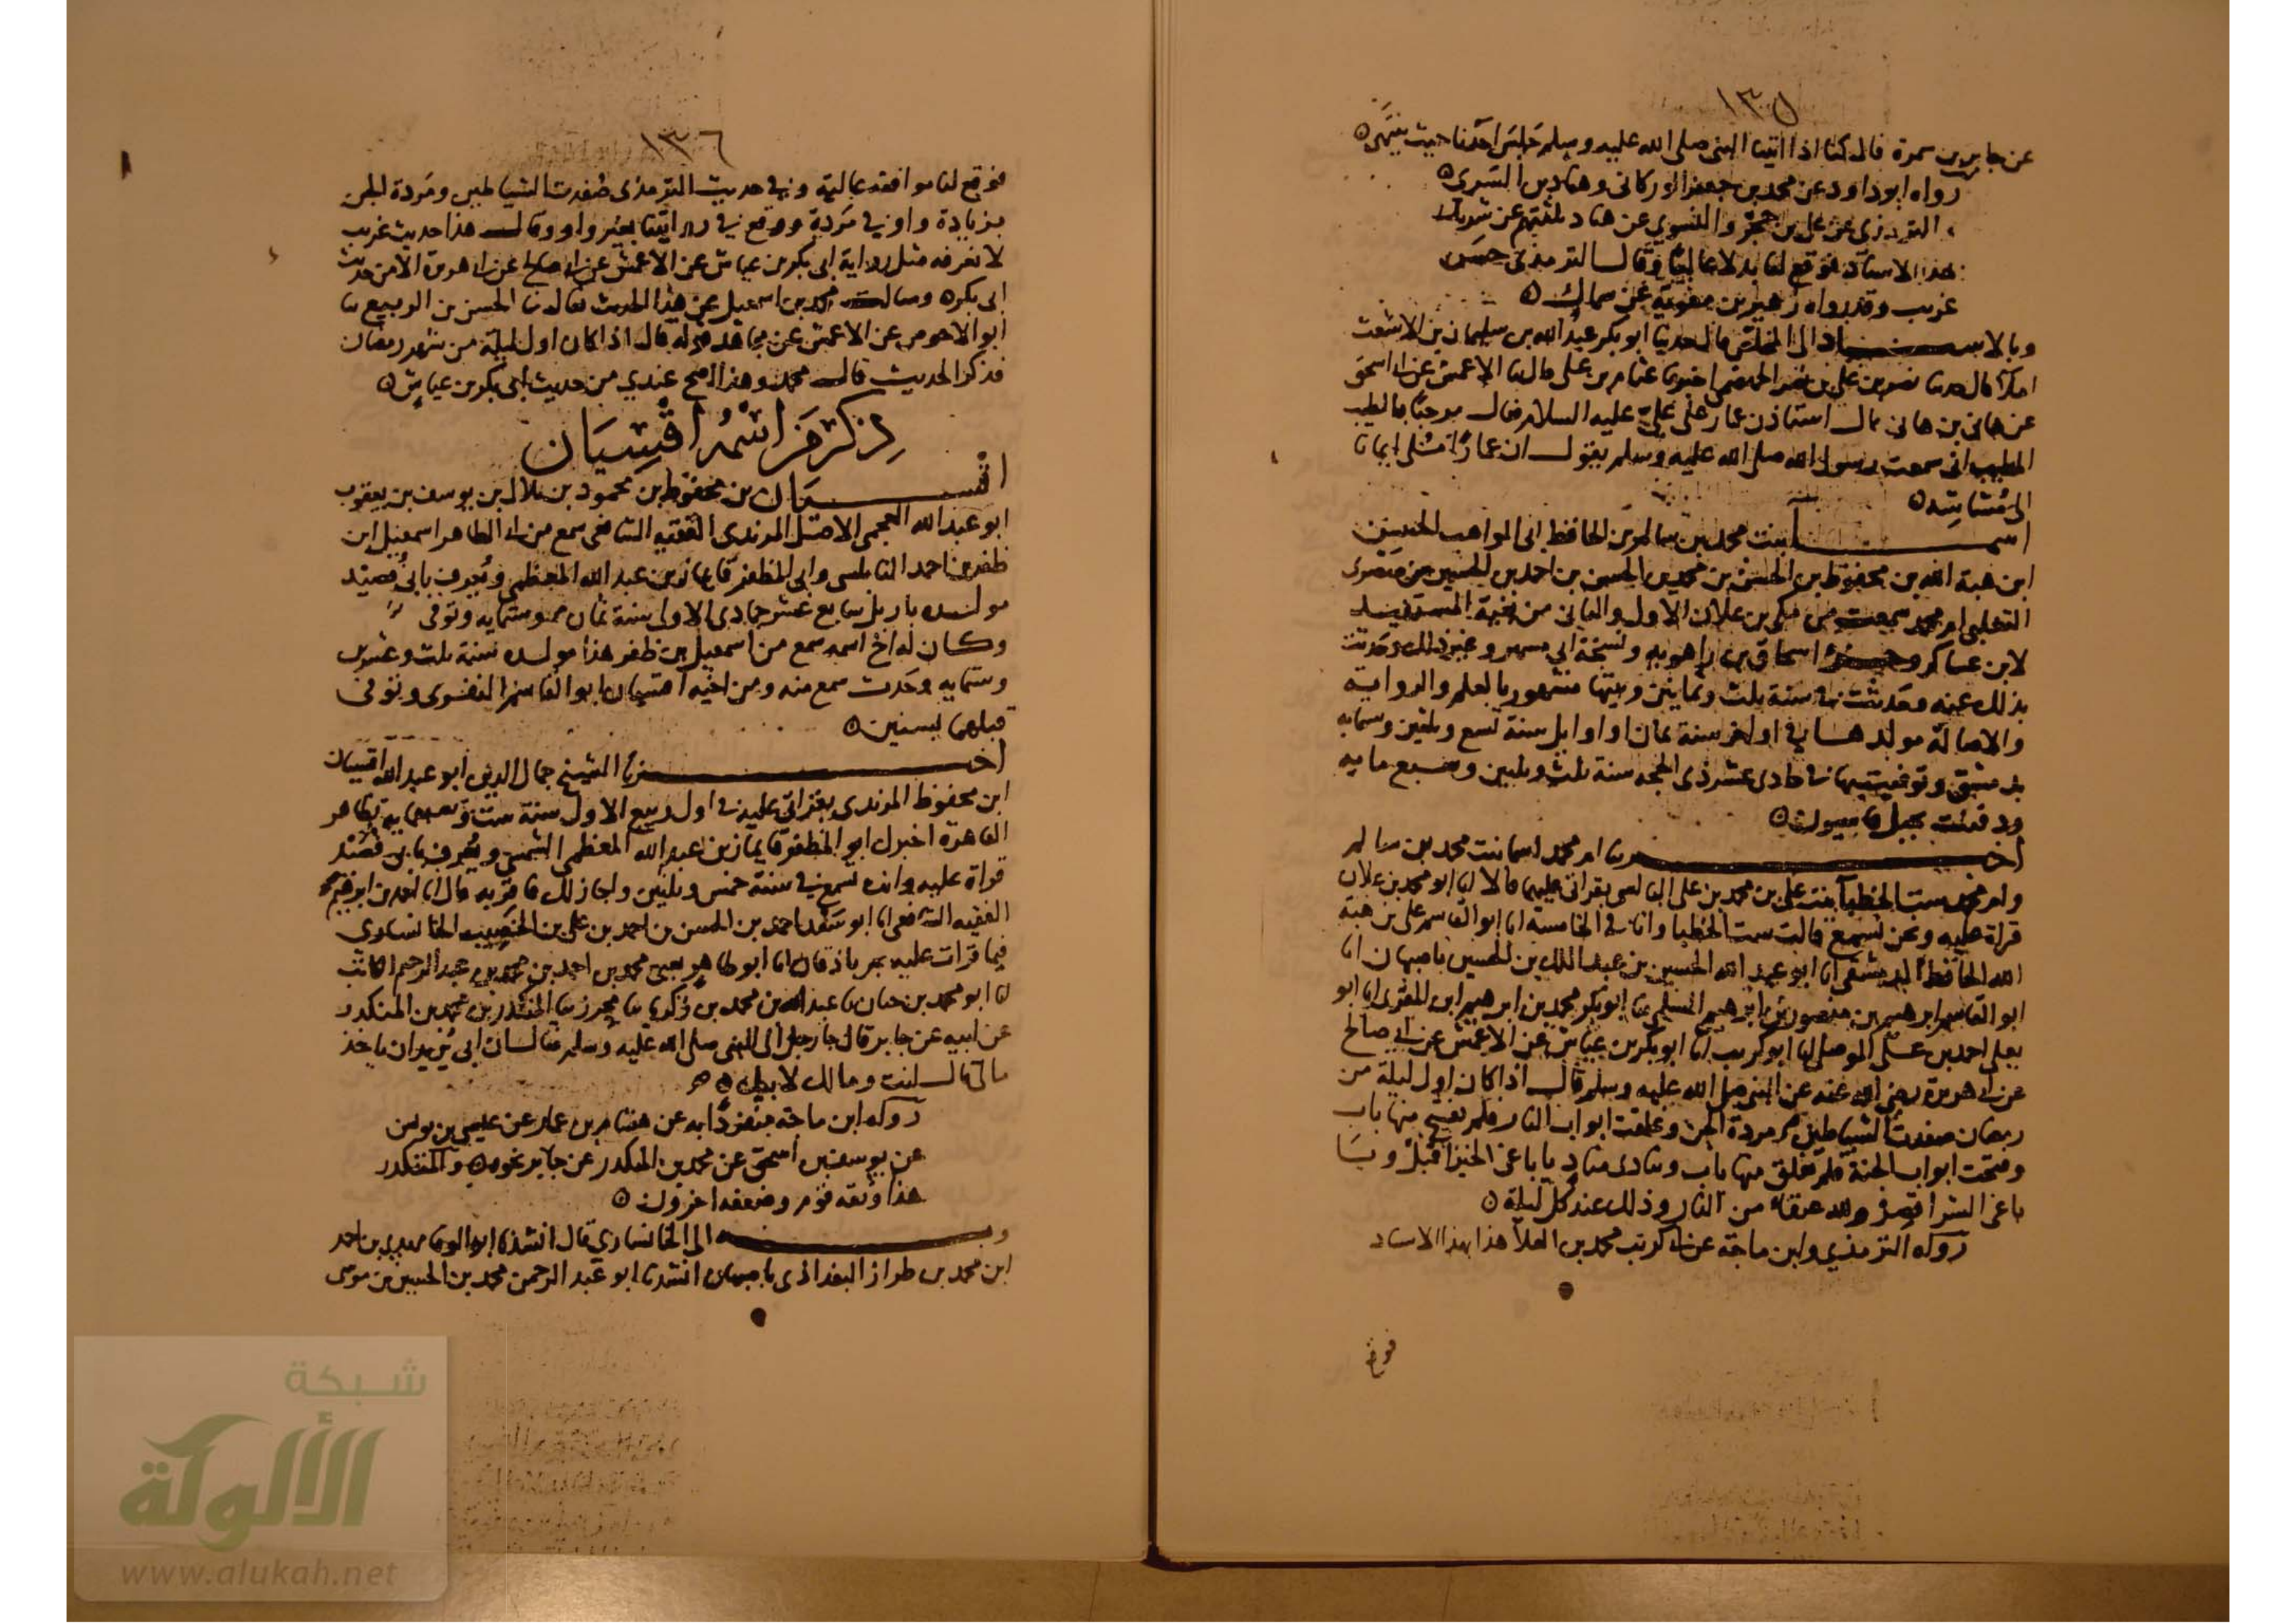 ١٣٥
عن جابر بن سمرة قال كنا اذا اتينا النبى صلى الله عليه وسلم جلس احدنا حيث ينتهى
رواه ابو داود عن محمد بن جعفر الوركانى وهناد بن السرى
الترمذى عن على بن حجر والنسوي عن هناد ثلثتهم عن شريك
بهذا الاسناد فوقع لنا بدلا عاليا وقال الترمذى حسن
غريب وقد رواه زهير بن معوية عن سماك
وبالاسناد الى المخلص قال حدثنا ابو بكر عبد الله بن سليمان بن الاشعث
املاء قال حدثنا نصر بن على بن نصر الجهضمى اخبرنا عثام بن على قال ثنا الاعمش عن ابى اسحق
عن هانى بن هانى قال استاذن عمار على على عليه السلام فقال مرحبا بالطيب
المطيب انى سمعت رسول الله صلى الله عليه وسلم يقول ان عمارا ملئ ايمانا
الى مشاشه
اسما بنت محمد بن سالم بن الحافظ ابى المواهب الحسن
ابن هبة الله بن محفوظ بن الحسن بن محمد بن الحسن بن احمد بن الحسين بن صصرى
التغلبى ام محمد سمعت من مكى بن علان الاول والثانى من بغية المستفيد
لابن عساكر وجزء اسحاق بن راهويه ونسخة ابى مسهر وغير ذلك وحدثت
بذلك عنه وحدثت فى سنة ثلث وثمانين وبيتها مشهور بالعلم والرواية
والاصالة مولدها فى اواخر سنة ثمان او اوايل سنة تسع وثلثين وستمايه
بدمشق وتوفيت بها فى حادى عشر ذى الحجه سنة ثلث وثلثين وسبع مايه
ودفنت بجبل قاسيون
اخبرتنا ام محمد اسما بنت محمد بن سالم
وام محمد ست الخطبا بنت على بن محمد بن على البالسى بقراتى عليهما قالا انا ابو محمد بن علان
قراة عليه ونحن نسمع قالت ست الخطبا وانا فى الخامسة انا ابو القاسم على بن هبة
الله الحافظ الدمشقى انا ابو عبد الله الحسين بن عبد الملك بن الحسين باصبهان انا
ابو القاسم ابرهيم بن منصور بن ابرهيم السلمى ثنا ابو بكر محمد بن ابرهيم ابن المقرى انا ابو
يعلى احمد بن على الموصلى ثنا ابو كريب ثنا ابو بكر بن عياش عن الاعمش عن ابى صالح
عن ابى هريرة رضى الله عنه عن النبى صلى الله عليه وسلم قال اذا كان اول ليلة من
رمضان صفدت الشياطين مردة الجن وغلقت ابواب النار فلم يفتح منها باب
وفتحت ابواب الجنة فلم يغلق منها باب وينادى مناد يا باغى الخير اقبل ويا
باغى الشر اقصر ولله عتقاء من النار وذلك عند كل ليلة
رواه الترمذي وابن ماجة عن ابى كريب محمد بن العلا هذا بهذا الاسناد
فوقع
١٣٦
فوقع لنا موافقة عالية وفى حديث الترمذى صفدت الشياطين ومردة الجن
بزيادة واو فى مردة ووقع فى روايتنا بغير واو وقال هذا حديث غريب
لا نعرفه مثل رواية ابى بكر بن عياش عن الاعمش عن ابى صالح عن ابى هريرة الا من حديث
ابى بكر وسالت محمد بن اسمعيل عن هذا الحديث فقال ثنا الحسن بن الربيع ثنا
ابو الاحوص عن الاعمش عن مجاهد قوله قال اذا كان اول ليلة من شهر رمضان
فذكر الحديث قال محمد وهذا اصح عندي من حديث ابى بكر بن عياش
ذكر من اسمه اقسيان
اقسيان بن محفوظ بن محمود بن هلال بن يوسف بن يعقوب
ابو عبد الله العجمى الاصل المرندى الفقيه الشافعى سمع من ابى الطاهر اسمعيل ابن
ظفر بن احمد النابلسى وابى المظفر قايماز بن عبد الله المعظمى ويعرف بابى
مولده باربل سابع عشر جمادى الاولى سنة ثمان وستمايه وتوفى
وكان له اخ اسمه سمع من اسمعيل بن ظفر هذا مولده سنة ثلث وعشرين
وستمايه وحدث سمع منه ومن اخيه اقسيان ابو القاسم الغضوى وتوفى
قبلهما بسنين
اخبرنا الشيخ جمال الدين ابو عبد الله اقسيان
ابن محفوظ المرندى بقراتى عليه فى اول ربيع الاول سنة ست بظاهر
القاهرة اخبرك ابو المظفر قايماز بن عبد الله المعظمى الشمسى ويعرف بابن
قراة عليه وانت تسمع فى سنة خمس وثلثين واجاز لك فاقر به قال انا احمد بن ابرهيم
الفقيه الشافعى انا ابو سعد احمد بن الحسن بن احمد بن على بن الخصيب الخانسارى
فيما قرات عليه بجرباذقان انا ابو طاهر يعنى محمد بن احمد بن محمد بن عبد الرحيم الكاتب
انا ابو محمد بن حيان ثنا عبد الله بن محمد بن زكريا ثنا محرز ثنا المنكدر بن محمد بن المنكدر
عن ابيه عن جابر قال جا رجل الى النبى صلى الله عليه وسلم فقال ان ابى يريد ان ياخذ
مالى قال انت ومالك لابيك
رواه ابن ماجة منفردا به عن هشام بن عمار عن عيسى بن يونس
عن يوسف بن اسحق عن محمد بن المنكدر عن جابر نحوه والمنكدر
هذا وثقه قوم وضعفه اخرون
وبه الى الخانساري قال انشدنا ابو الوفا مهدى بن احمد
ابن محمد بن طراز البغدادى باصبهان انشدنا ابو عبد الرحمن محمد بن الحسين بن موسى
شبكة
الألوكة
www.alukah.net